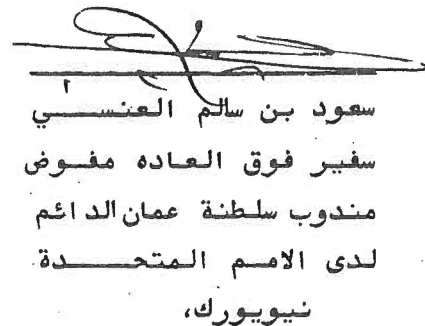 سعود بن سالم العنســـي
سفير فوق العاده مفـوض
مندوب سلطنة عمان الدائم
لدى الامـم المتحـــدة
نيويورك،